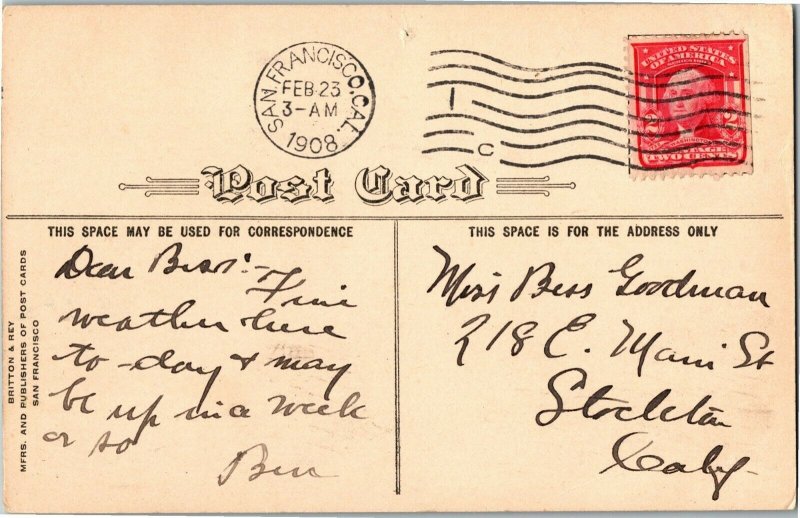 SAN FRANCISCO, CAL.
FEB 23
3-AM
1908
1
C
UNITED STATES
OF AMERICA
2
2
WASHINGTON
POSTAGE
TWO CENTS
Post Card
THIS SPACE MAY BE USED FOR CORRESPONDENCE
THIS SPACE IS FOR THE ADDRESS ONLY
BRITTON & REY
MFRS. AND PUBLISHERS OF POST CARDS
SAN FRANCISCO
Dear Bess:-
Fine
weather here
to-day & may
be up in a week
or so
Ben
Miss Bess Goodman
218 E. Main St
Stockton